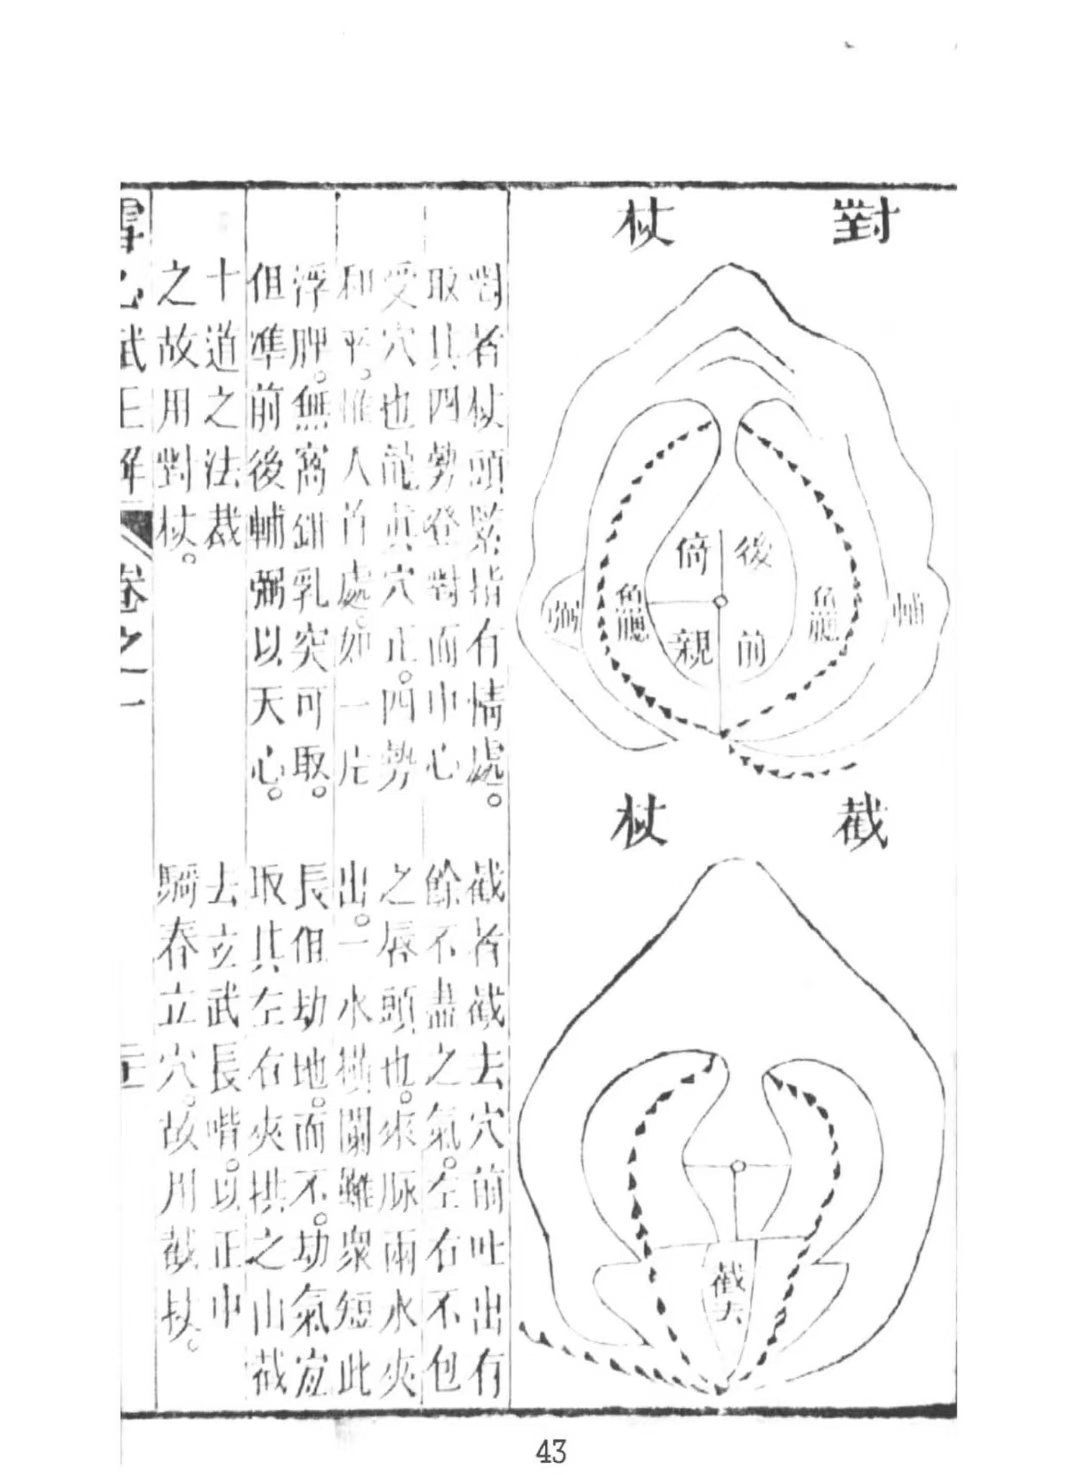 對杖
弼
魚臚
倚
後
親
前
魚臚
輔
截杖
截去
對者杖頭緊指有情處。
取其四勢登對而中心
受穴也龍真穴正。四勢
和平。惟人首處。如一片
浮胛。無窩鉗乳突可取。
但準前後輔弼以天心。
十道之法裁
之故用對杖。
截者截去穴前吐出有
餘不盡之氣。左右不包
之唇頭也。來脉兩水夾
出。一水橫闌雖衆短此
長但劫地。而不。劫氣宜
取其左右夾拱之山截
去玄武長嘴。以正中
騎春立穴。故用截杖。
卷之一
43